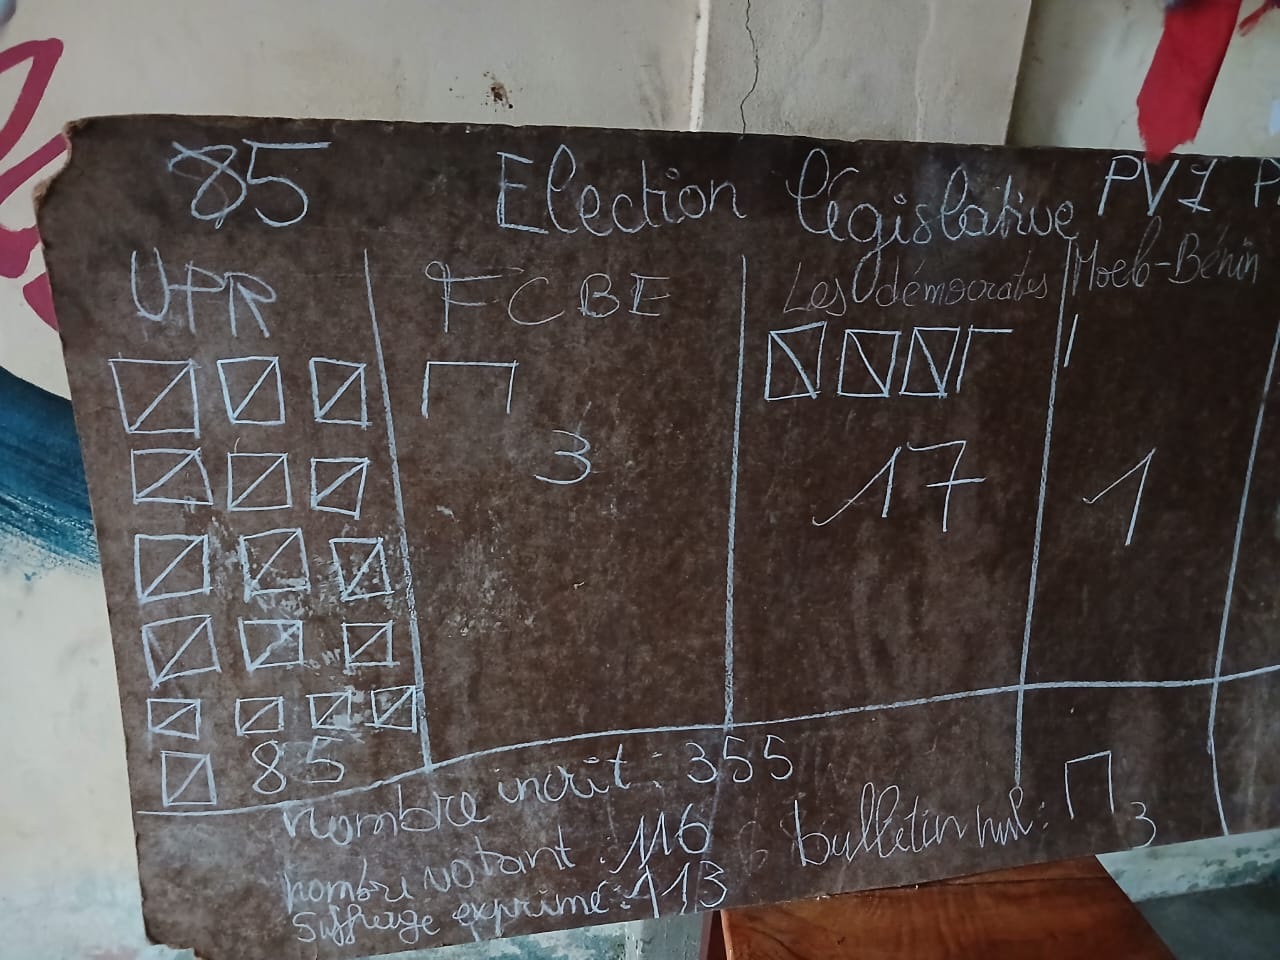 85
Election législative PV1
UPR
FCBE
Les démocrates
Moele-Bénin
3
17
1
85
Nombre incrit : 355
nombre votant : 116
Suffrage exprimé : 113
bulletin nul : 3